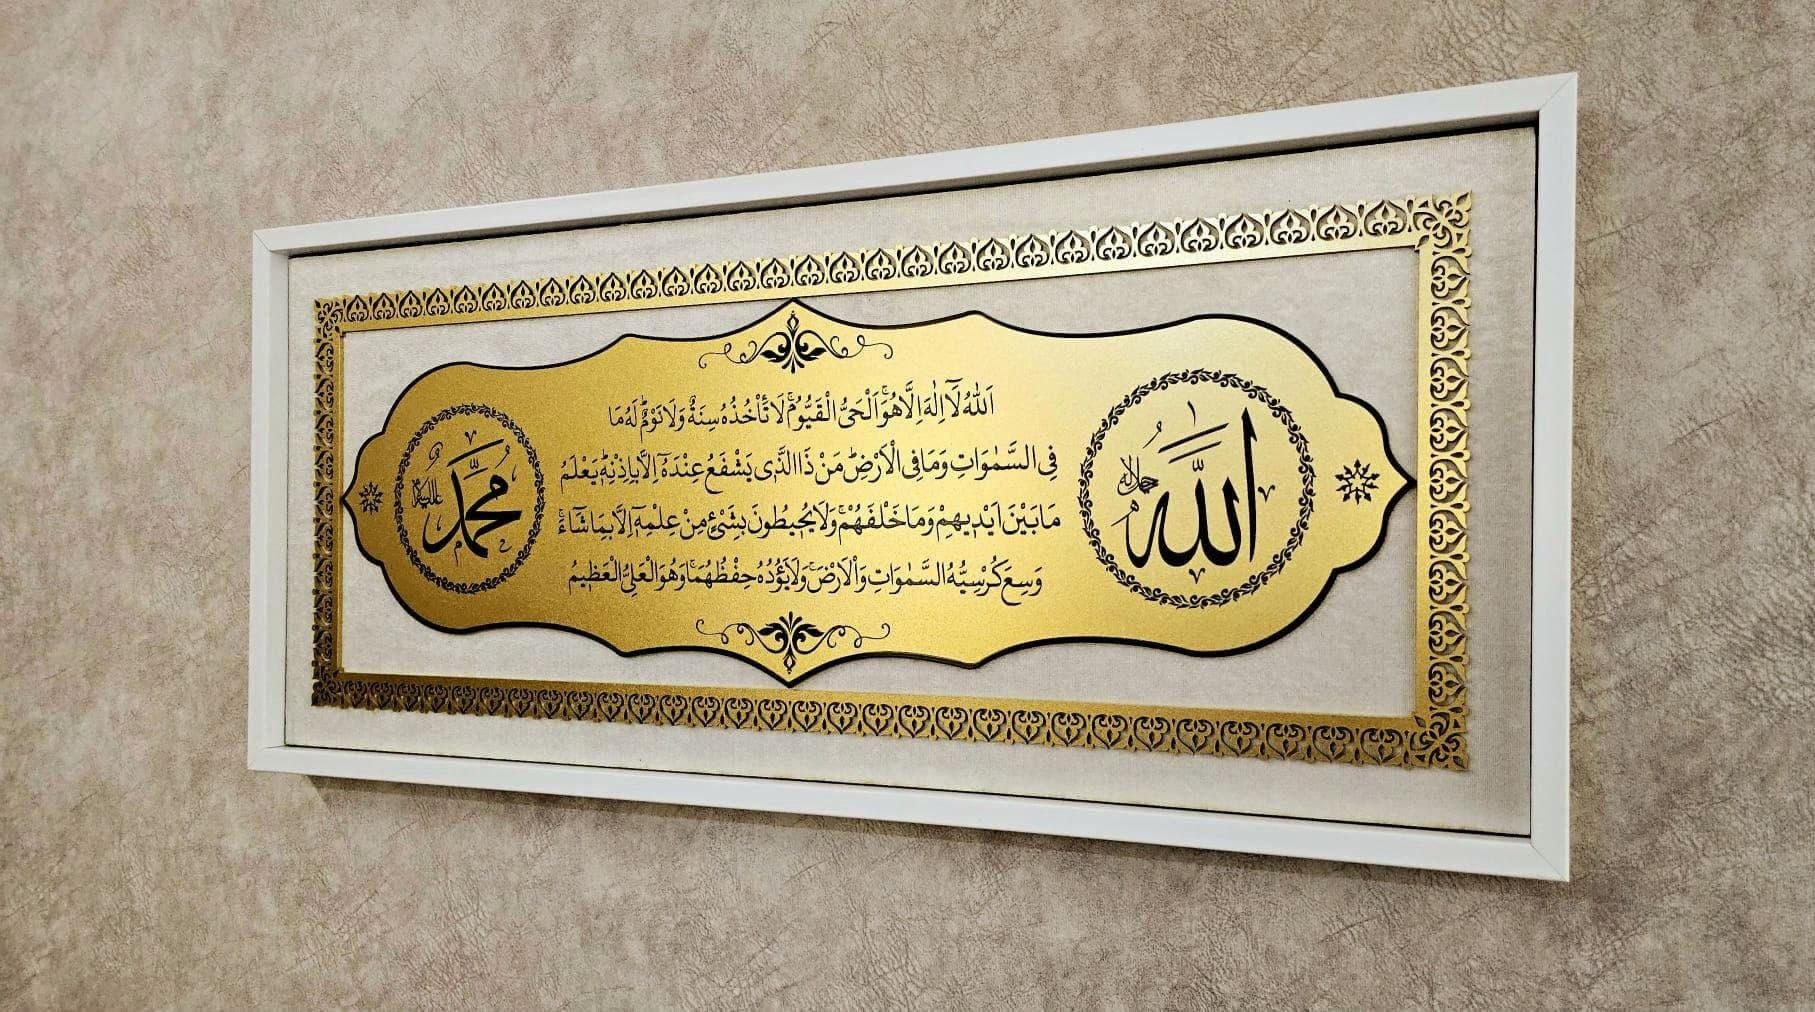 الله
جل جلاله
اَللّٰهُ لَٓا اِلٰهَ اِلَّا هُوَۚ اَلْحَيُّ الْقَيُّومُۚ لَا تَأْخُذُهُ سِنَةٌ وَلَا نَوْمٌۜ لَهُ مَا
فِي السَّمٰوَاتِ وَمَا فِي الْاَرْضِۜ مَنْ ذَا الَّذ۪ي يَشْفَعُ عِنْدَهُٓ اِلَّا بِاِذْنِه۪ۜ يَعْلَمُ
مَا بَيْنَ اَيْد۪يهِمْ وَمَا خَلْفَهُمْۚ وَلَا يُح۪يطُونَ بِشَيْءٍ مِنْ عِلْمِه۪ٓ اِلَّا بِمَا شَٓاءَۚ
وَسِعَ كُرْسِيُّهُ السَّمٰوَاتِ وَالْاَرْضَۚ وَلَا يَؤُ۫دُهُ حِفْظُهُمَاۚ وَهُوَ الْعَلِيُّ الْعَظ۪يمُ
محمد